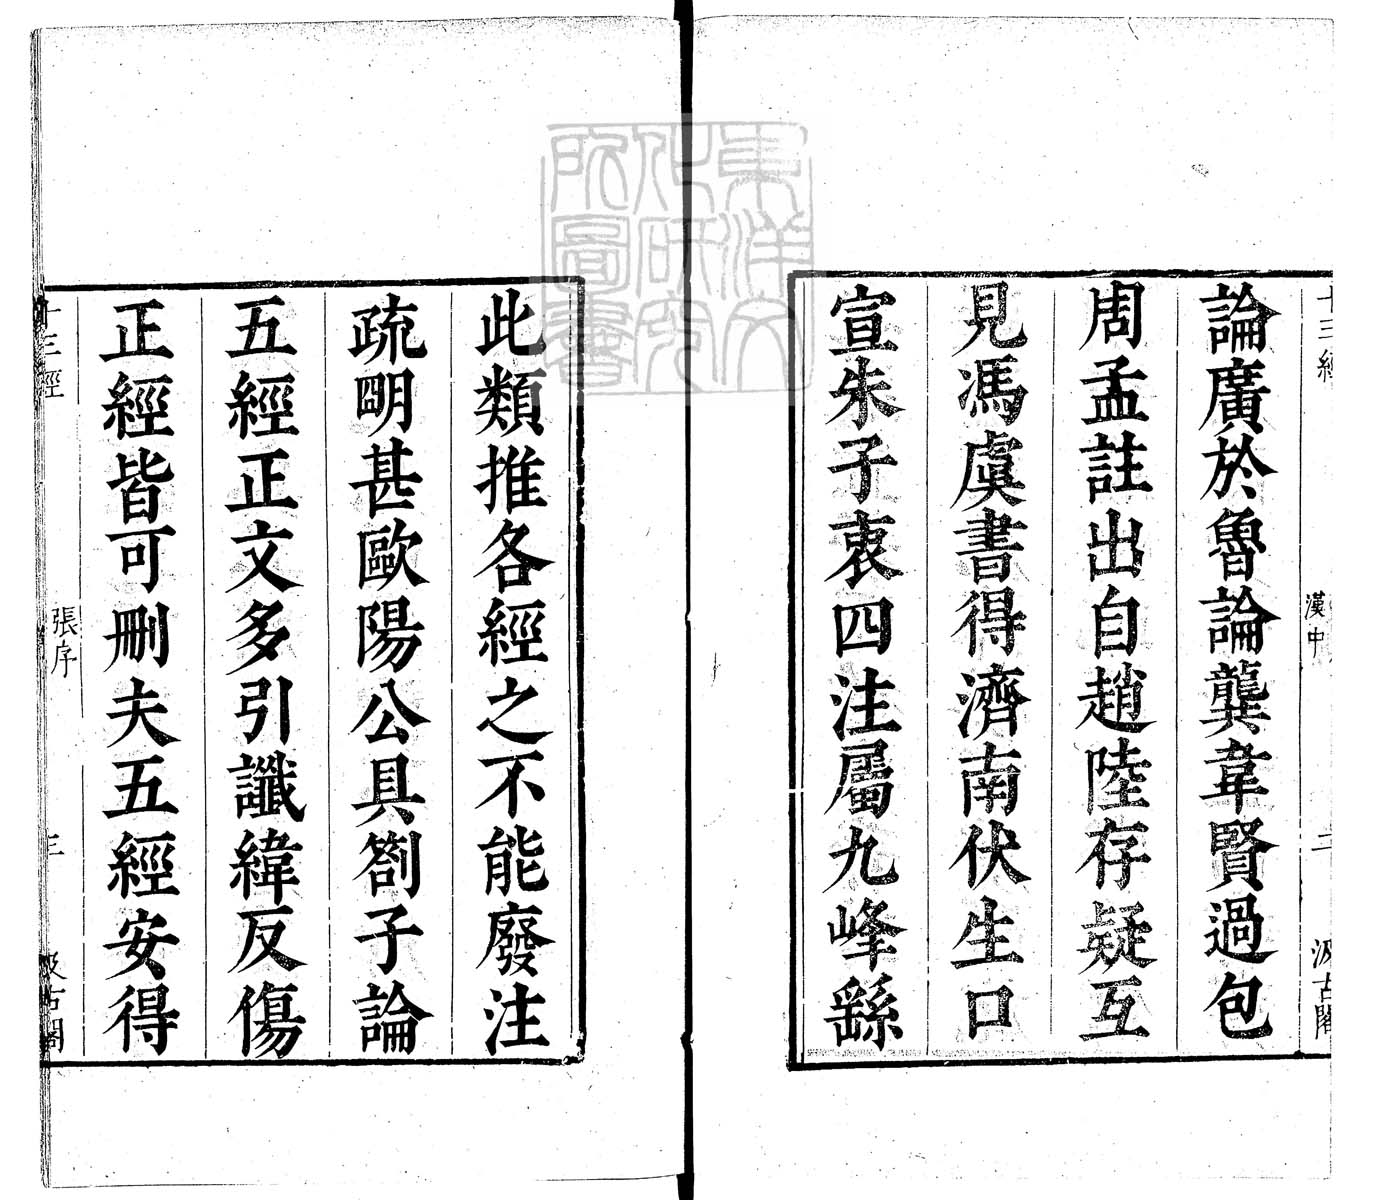 十三經
漢中
二
汲古閣
論廣於魯論龔韋賢過包
周孟註出自趙陸存疑互
見馮虞書得濟南伏生口
宣朱子衷四注屬九峰繇
此類推各經之不能廢注
疏朙甚歐陽公具劄子論
五經正文多引讖緯反傷
正經皆可刪夫五經安得
十三經
張序
三
汲古閣
東洋文
化研究
所圖書